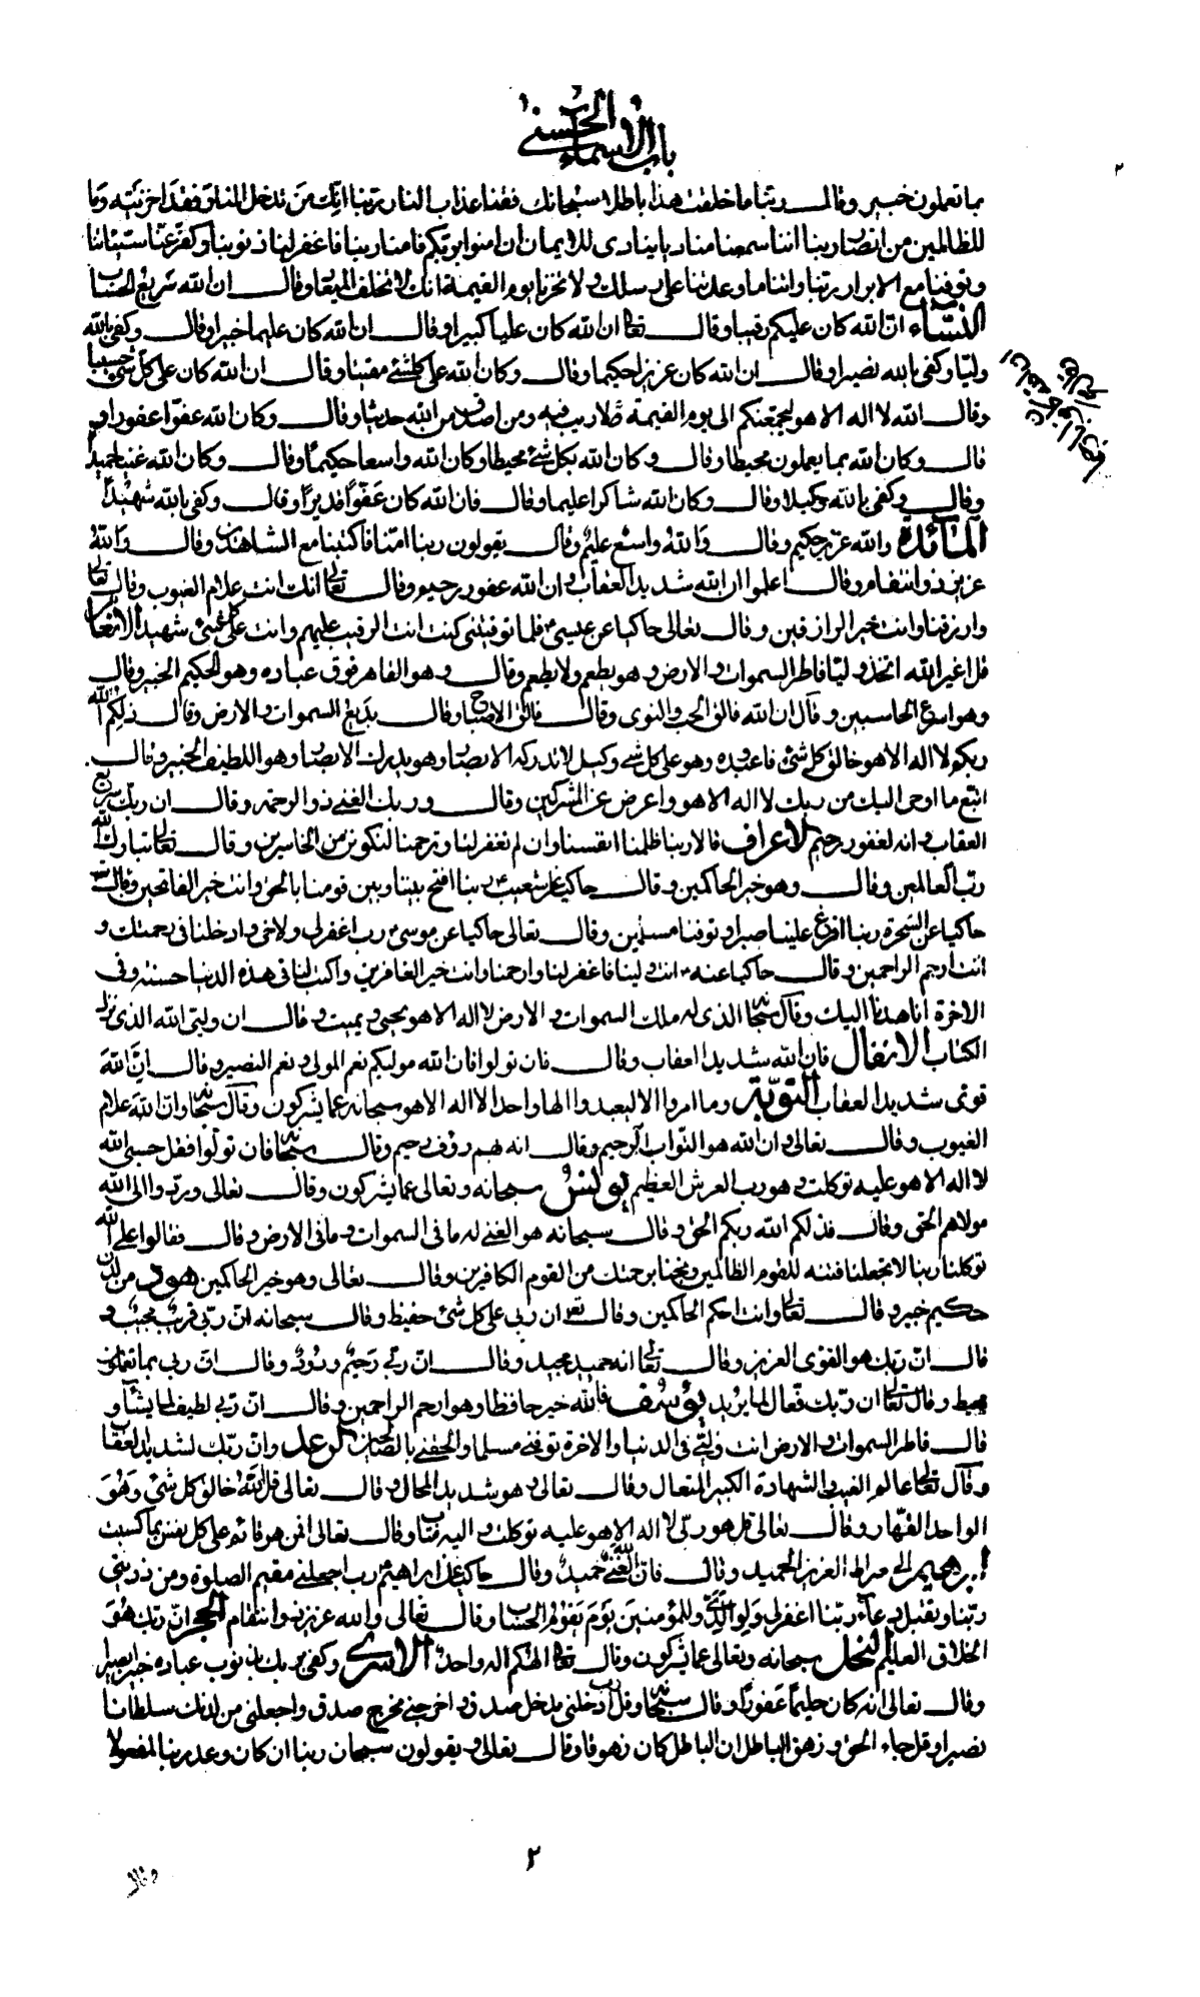 باب الاسماء الحسنى
٢
بما تعملون خبير وقال ربنا ما خلقت هذا باطلا سبحانك فقنا عذاب النار ربنا انك من تدخل النار فقد اخزيته وما
للظالمين من انصار ربنا اننا سمعنا مناديا ينادى للايمان ان امنوا بربكم فامنا ربنا فاغفر لنا ذنوبنا وكفر عنا سيئاتنا
وتوفنا مع الابرار ربنا واتنا ما وعدتنا على رسلك ولا تخزنا يوم القيمة انك لا تخلف الميعاد وقال ان الله سريع الحساب
النساء ان الله كان عليكم رقيبا وقال تعالى ان الله كان عليا كبيرا وقال ان الله كان عليما خبيرا وقال وكفى بالله
وليا وكفى بالله نصيرا وقال ان الله كان عزيزا حكيما وقال وكان الله على كل شئ مقيتا وقال ان الله كان على كل شئ حسيبا
وقال الله لا اله الا هو ليجمعنكم الى يوم القيمة لا ريب فيه ومن اصدق من الله حديثا وقال وكان الله عفوا غفورا و
قال وكان الله بما يعملون محيطا وقال وكان الله بكل شئ محيطا وكان الله واسعا حكيما وقال وكان الله غنيا حميدا
وقال وكفى بالله وكيلا وقال وكان الله شاكرا عليما وقال فان الله كان عفوا قديرا وقال وكفى بالله شهيدا
المائدة والله عزيز حكيم وقال والله واسع عليم وقال يقولون ربنا امنا فاكتبنا مع الشاهدين وقال والله
عزيز ذو انتقام وقال اعلموا ان الله شديد العقاب وان الله غفور رحيم وقال تعالى انك انت علام الغيوب وقال تعالى
وارزقنا وانت خير الرازقين وقال تعالى حاكيا عن عيسى فلما توفيتنى كنت انت الرقيب عليهم وانت على كل شئ شهيد الانعام
قل اغير الله اتخذ وليا فاطر السموات والارض وهو يطعم ولا يطعم وقال وهو القاهر فوق عباده وهو الحكيم الخبير وقال
وهو اسرع الحاسبين وقال ان الله فالق الحب والنوى وقال فالق الاصباح وقال بديع السموات والارض وقال ذلكم الله
ربكم لا اله الا هو خالق كل شئ فاعبدوه وهو على كل شئ وكيل لا تدركه الابصار وهو يدرك الابصار وهو اللطيف الخبير وقال
اتبع ما اوحى اليك من ربك لا اله الا هو واعرض عن المشركين وقال وربك الغنى ذو الرحمة وقال ان ربك سريع
العقاب وانه لغفور رحيم الاعراف قالا ربنا ظلمنا انفسنا وان لم تغفر لنا وترحمنا لنكونن من الخاسرين وقال تعالى تبارك الله
رب العالمين وقال وهو خير الحاكمين وقال حاكيا عن شعيب ربنا افتح بيننا وبين قومنا بالحق وانت خير الفاتحين وقال
حاكيا عن السحرة ربنا افرغ علينا صبرا وتوفنا مسلمين وقال تعالى حاكيا عن موسى رب اغفر لى ولاخى وادخلنا فى رحمتك و
انت ارحم الراحمين وقال حاكيا عنه انت ولينا فاغفر لنا وارحمنا وانت خير الغافرين واكتب لنا فى هذه الدنيا حسنة وفى
الاخرة انا هدنا اليك وقال سبحانه الذى له ملك السموات والارض لا اله الا هو يحيى ويميت وقال ان وليى الله الذى نزل
الكتاب الانفال فان الله شديد العقاب وقال فان تولوا فان الله موليكم نعم المولى ونعم النصير وقال ان الله
قوى شديد العقاب التوبة وما امروا الا ليعبدوا الها واحدا لا اله الا هو سبحانه عما يشركون وقال سبحانه وان الله علام
الغيوب وقال تعالى وان الله هو التواب الرحيم وقال انه بهم رؤف رحيم وقال سبحانه فان تولوا فقل حسبى الله
لا اله الا هو عليه توكلت وهو رب العرش العظيم يونس سبحانه وتعالى عما يشركون وقال تعالى وردوا الى الله
مولاهم الحق وقال فذلكم الله ربكم الحق وقال سبحانه هو الغنى له ما فى السموات وما فى الارض وقال فقالوا على الله
توكلنا ربنا لا تجعلنا فتنة للقوم الظالمين ونجنا برحمتك من القوم الكافرين وقال تعالى وهو خير الحاكمين هود من لدن
حكيم خبير وقال تعالى وانت احكم الحاكمين وقال تعالى ان ربى على كل شئ حفيظ وقال سبحانه ان ربى قريب مجيب و
قال ان ربك هو القوى العزيز وقال تعالى انه حميد مجيد وقال ان ربى رحيم ودود وقال ان ربى بما تعملون
محيط وقال تعالى ان ربك فعال لما يريد يوسف فالله خير حافظا وهو ارحم الراحمين وقال ان ربى لطيف لما يشاء و
قال فاطر السموات والارض انت وليى فى الدنيا والاخرة توفنى مسلما والحقنى بالصالحين الرعد وان ربك لشديد العقاب
وقال تعالى عالم الغيب والشهادة الكبير المتعال وقال تعالى وهو شديد المحال وقال تعالى قل الله خالق كل شئ وهو
الواحد القهار وقال تعالى قل هو ربى لا اله الا هو عليه توكلت واليه متاب وقال تعالى افمن هو قائم على كل نفس بما كسبت
ابرهيم الى صراط العزيز الحميد وقال فان الله لغنى حميد وقال حاكيا عن ابراهيم رب اجعلنى مقيم الصلوة ومن ذريتى
ربنا وتقبل دعاء ربنا اغفر لى ولوالدى وللمؤمنين يوم يقوم الحساب وقال تعالى والله عزيز ذو انتقام الحجر ان ربك هو
الخلاق العليم النحل سبحانه وتعالى عما يشركون وقال تعالى الهكم اله واحد الاسرى وكفى بربك بذنوب عباده خبيرا بصيرا
وقال تعالى انه كان حليما غفورا وقال سبحانه وقل رب ادخلنى مدخل صدق واخرجنى مخرج صدق واجعلنى من لدنك سلطانا
نصيرا وقل جاء الحق وزهق الباطل ان الباطل كان زهوقا وقال تعالى ويقولون سبحان ربنا ان كان وعد ربنا لمفعولا
٢
وقال